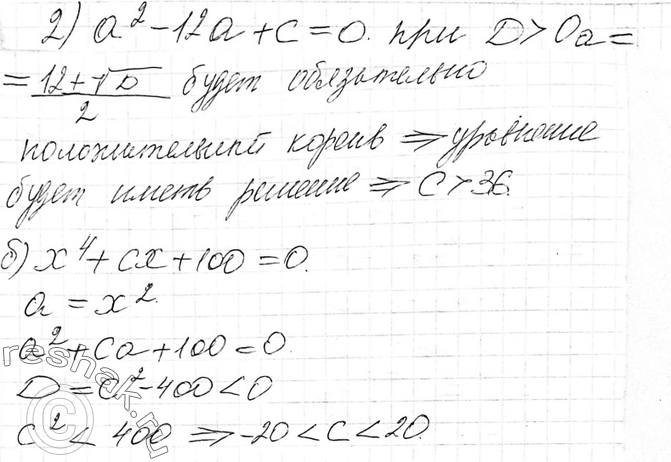 2) a² - 12a + c = 0. при D > 0 a =
= (12 + √D) / 2 будет обязательно
положительный корень ⇒ уравнение
будет иметь решение ⇒ c > 36.
б) x⁴ + cx + 100 = 0.
a = x².
a² + ca + 100 = 0.
D = c² - 400 < 0
c² < 400 ⇒ -20 < c < 20.
© reshak.ru